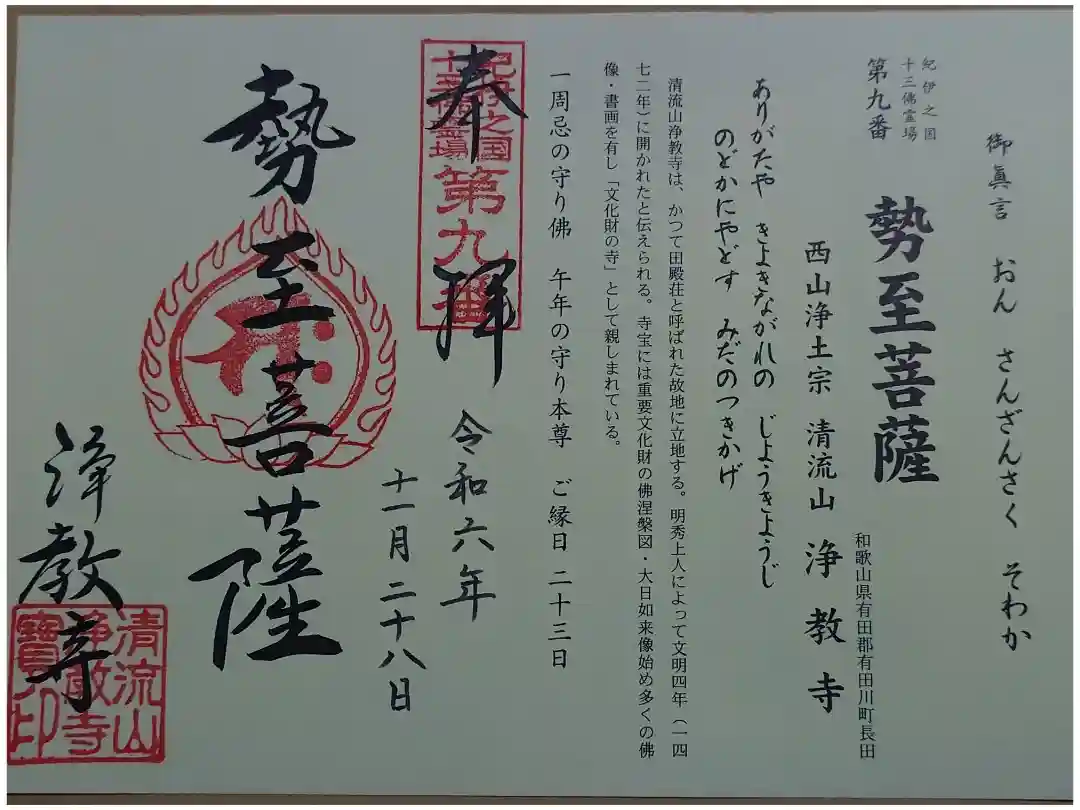 御眞言　おん　さんざんさく　そわか
紀伊之国
十三佛霊場
第九番
勢至菩薩
和歌山県有田郡有田川町長田
西山浄土宗　清流山　浄教寺
ありがたや　きよきながれの　じようきようじ
のどかにやどす　みだのつきかげ
清流山浄教寺は、かつて田殿荘と呼ばれた故地に立地する。明秀上人によって文明四年（一四
七二年）に開かれたと伝えられる。寺宝には重要文化財の佛涅槃図・大日如来像始め多くの佛
像・書画を有し「文化財の寺」として親しまれている。
一周忌の守り佛　午年の守り本尊　ご縁日 二十三日
奉拝
紀伊之国
十三佛霊場
第九番
令和六年
十一月二十八日
勢至菩薩
浄教寺
清流山
浄教寺
寶印